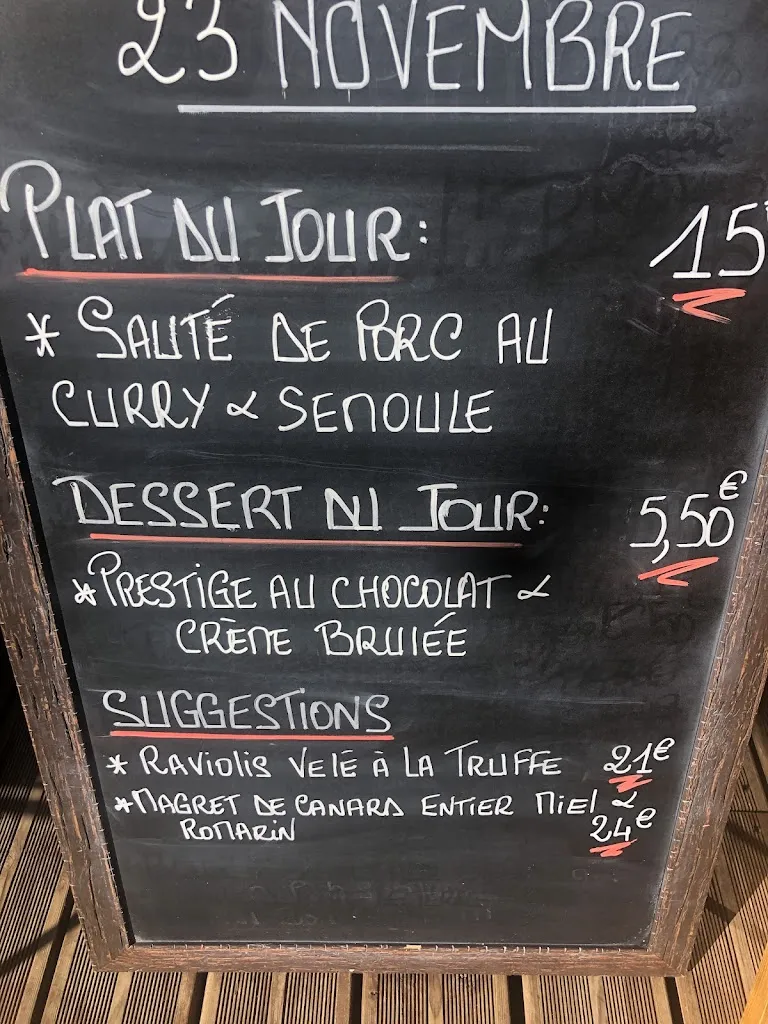 23 NOVEMBRE
PLAT DU JOUR: 15
* SAUTÉ DE PORC AU
CURRY & SEMOULE
DESSERT DU JOUR: 5,50€
* PRESTIGE AU CHOCOLAT &
CRÈME BRULÉE
SUGGESTIONS
* RAVIOLIS VELÉ À LA TRUFFE 21€
* MAGRET DE CANARD ENTIER MIEL &
ROMARIN 24€